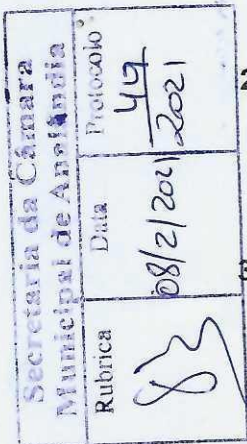 Secretaria da Câmara
Municipal de Analândia
Rubrica
Data
Protocolo
08/2/2021
49
2021